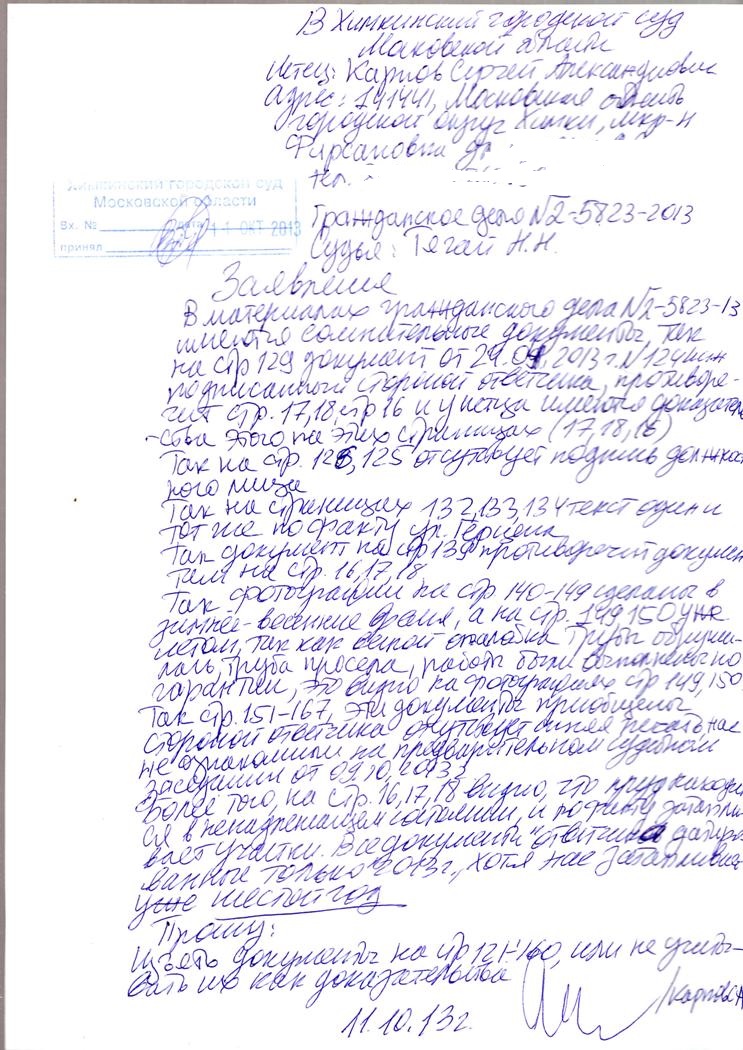 В Химкинский городской суд
Московской области
Истец: Карпов Сергей Александрович
Адрес: 141441, Московская область
городской округ Химки, мкр-н
Фирсановка
тел.
Химкинский городской суд
Московской области
Вх. №
11 ОКТ 2013
принял
Гражданское дело №2-5823-2013
Судья: Тягай Н.Н.
Заявления
В материалах гражданского дела №2-5823-13
имеются сомнительные документы, так
на стр 129 документ от 29.04.2013 г. №124
подписанный стороной ответчика, противоре-
чит стр. 17,18, стр 16 и у истца имеются доказатель
-ства этого на этих страницах (17,18,16)
Так на стр. 126,125 отсутствует подпись должност
ного лица
Так на страницах 132,133,134 текст один и
тот же по факту ул. Герцена
Так документ на стр 139 противоречит докумен
там на стр. 16,17,18
Так фотографии на стр 140-149 сделаны в
зимнее-весеннее время, а на стр. 149,150 уже
летом, так как весной опалобка трубы обруши-
лась, труба просела, работы были выполнены по
гарантии, это видно на фотографиях стр 149,150
Так стр. 151-167, эти документы приобщены
стороной ответчика отсутствует синяя печать, нас
не ознакомили на предварительном судебном
заседании от 09.10.2013 г
Более того, на стр. 16,17,18 видно, что пруд находит
ся в ненадлежащем состоянии, и по факту затапли
вает участки. Все документы ответчика датиро
ванные только 2013г., хотя нас затапливает
уже шестой год
Прошу:
Изъять документы на стр 121-160, или не учиты-
вать их как доказательства
/Карпов СА
11.10.13г.